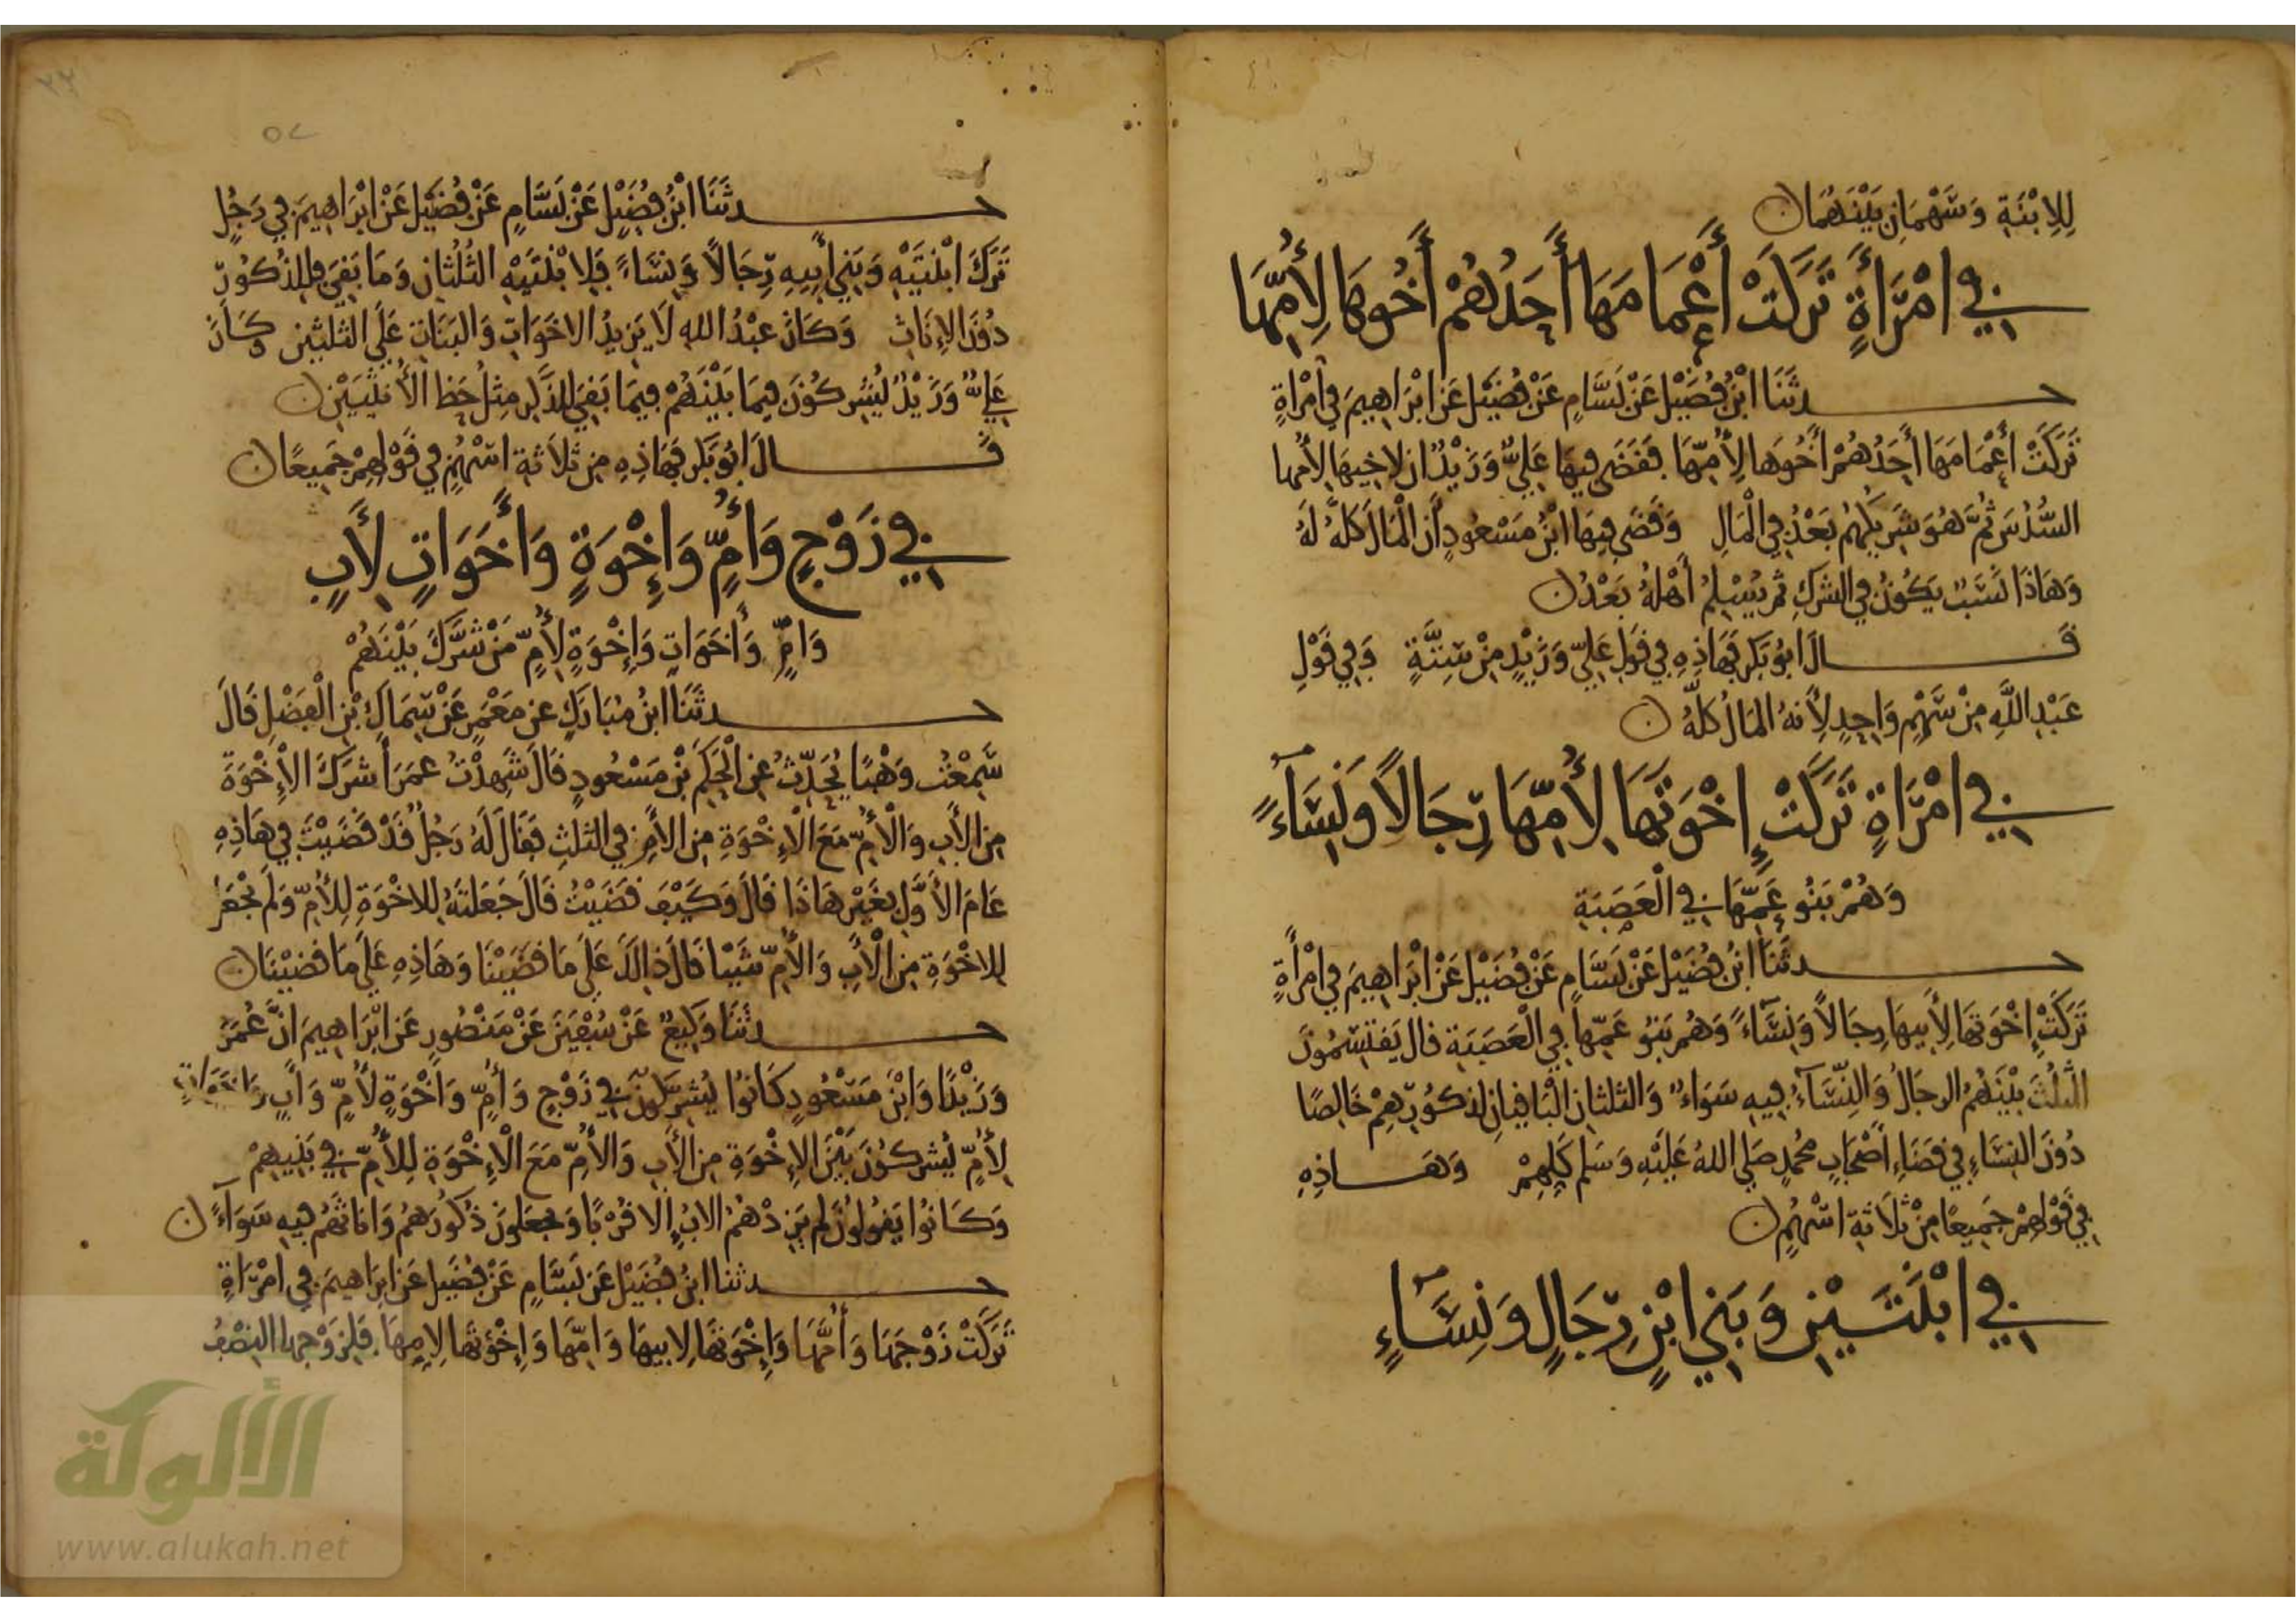 للابْنَةِ وَسَهْمَانِ بَيْنَهُمَا
في امْرَأَةٍ تَرَكَتْ أَعْمَامَهَا أَحَدُهُمْ أَخُوهَا لِأُمِّهَا
حدثَنَا ابْنُ فُضَيْل عَنْ بَسَّامٍ عَنْ فُضَيْل عَن ابْرَاهِيمَ في امْرأةٍ
تَرَكَتْ أَعْمَامَهَا أَحَدُهُمْ أَخُوهَا لِأُمِّهَا فَقَضَى فِيهَا عَلِيٌّ وَزَيْدٌ ان لاخِيهَا لأمها
السُّدُسَ ثُمَّ هُوَ شَرِيكُهُمْ بَعْدُ فِي الْمَالِ وَقَضَى فِيهَا ابْنُ مَسْعُودٍ أَن الْمَالَ كُلَّهُ لَهُ
وَهَاذَا نَسَبٌ يَكُونُ فِي الشرْكِ ثم يُسْلِمُ أَهْلُهُ بَعْدُ
قَالَ ابُو بَكر فَهَاذِهِ فِي قَوْلِ عَلِيّ وَزَيْدٍ مِنْ سِتَّةٍ وَفِي قَوْلِ
عَبْدِ اللَّهِ مِنْ سَهْمٍ وَاحِدٍ لِأَنهُ المَالُ كلُّهُ
في امْرَاةٍ تَرَكَتْ إِخْوَتَهَا لِأُمِّهَا رِجَالاً وَنِسَاءً
وَهُمْ بَنُو عَمِّهَا فِي الْعَصَبَةِ
حدثَنَا ابْنُ فُضَيْل عَنْ بَسَّامٍ عَنْ فُضَيْل عَنْ ابْرَاهِيمَ فِي امْرَأَةٍ
تَرَكَتْ إِخْوَتَهَا لِأَبِيهَا رِجَالاً وَنِسَاءً وَهُمْ بَنُو عَمّهَا فِي الْعَصَبَةِ قال يَقْتَسِمُونَ
الثُلُثَ بَيْنَهُمُ الرجَالُ وَالنِّسَاءُ فِيهِ سَوَاءٌ وَالثلثانِ الْبَاقِيانِ لِذكُورِهِمْ خَالِصًا
دُونَ النِسَاءِ فِي قَضَاءِ أَصْحَابِ مُحَمدٍ صَلى اللهُ عَلَيْهِ وَسَلم كُلِّهِمْ وَهَاذِهِ
فِي قَوْلهِمْ جَمِيعًا مِنْ ثَلَاثَةِ اسْهُمٍ
في ابْنَتَيْنِ وَبَنِي ابْنٍ رِجَالٍ وَنِسَاءٍ
حدثَنَا ابْنُ فُضَيْلٍ عَنْ بَسَّامٍ عَنْ فُضَيْل عَن ابْرَاهِيمَ فِي رَجُلٍ
تَرَكَ ابْنَتَيْهِ وَبَنِي أَبِيهِ رِجَالاً وَنِسَاءً فَلِابْنَتَيْهِ الثُلُثانِ وَمَا بَقِيَ فلِلذُكُورِ
دُونَ الإِنَاثِ وَكَانَ عَبْدُ اللهِ لَا يَزِيدُ الاخَوَاتِ وَالبَنَاتِ عَلَى الثلثيْنِ وكَانَ
عَلِيٌّ وَزَيْدٌ يُشْرِكُونَ فِيمَا بَيْنَهُمْ فِيمَا بَقِيَ لِلذَّكَرِ مِثْلُ حَظِ الأُنْثَيَيْنِ
قَالَ ابُو بَكر فَهَاذِهِ مِن ثَلَاثَةِ اسْهُمٍ فِي قَوْلِهِمْ جَمِيعًا
في زَوْجٍ وَأُمٍّ وَإِخْوَةٍ وَأَخَوَاتٍ لِأَبٍ
وَامٍّ وَأخَوَاتٍ وَإِخْوَةٍ لِأُمٍّ مَنْ شَرَّكَ بَيْنَهُمْ
حدثَنَا ابنُ مُبَارَكٍ عن مَعْمَرٍ عَنْ سِمَاكِ بْنِ الْفَضْلِ قَالَ
سَمِعْتُ وَهْبًا يُحَدِّثُ عن الْحَكَمِ بْنِ مَسْعُودٍ قَالَ شَهِدْتُ عمَرَ أَشرَكَ الإِخْوَةَ
مِن الأَبِ وَالْأُمّ مَعَ الْإِخْوَةِ مِن الأُمِّ في الثلثِ فَقَالَ لَهُ رَجُلٌ قَدْ قَضَيْتَ فِي هَاذِهِ
عَامَ الأَوَّلِ بِغَيْرِ هَاذَا قَالَ وَكَيْفَ قَضَيْتُ قَالَ جَعَلْتَهُ لِلاخْوَةِ لِلأُمِّ وَلَمْ تَجْعَلْ
لِلاخْوَةِ مِن الْأَبِ وَالْأُمِّ شَيْئا قَالَ ذَالِكَ عَلَى مَا قَضَيْنَا وَهَاذِهِ عَلَى مَا قَضَيْنَا
حدثَنَا وَكِيعٌ عَنْ سُفْيَنَ عَنْ مَنْصُورٍ عَن ابْرَاهِيمَ انَّ عُمَرَ
وَزَيْدًا وَابْنَ مَسْعُودٍ كَانُوا يُشَرِّكُونَ فِي زَوْجٍ وَأُمٍّ وَاخْوَةٍ لأُمٍّ وَأَبٍ وَاخَوَاتٍ
لِأُمٍّ يُشركُونَ بَيْنَ الإِخْوَةِ مِن الأَبِ وَالأُمِّ مَعَ الْإِخْوَةِ لِلأُمِّ في
وَكَانُوا يَقُولُونَ لم يَزِدْهُمُ الابُ إلا قُرْبًا وَيجعَلونَ ذُكُورَهُمْ وَانَاثَهُمْ فِيهِ سَوَاءً
حدثنا ابنُ فُضَيْل عَن بَسَّامٍ عَنْ فُضَيْل عَن ابرَاهِيمَ في امْرَاةٍ
تَرَكَتْ زَوْجَهَا وَأُمَّهَا وَإِخْوَتَهَا لِابِيهَا وَامِّهَا وَإِخْوَتَهَا لِامِّهَا فَلِزَوْجِهَا النِصْفُ
الألوكة
www.alukah.net